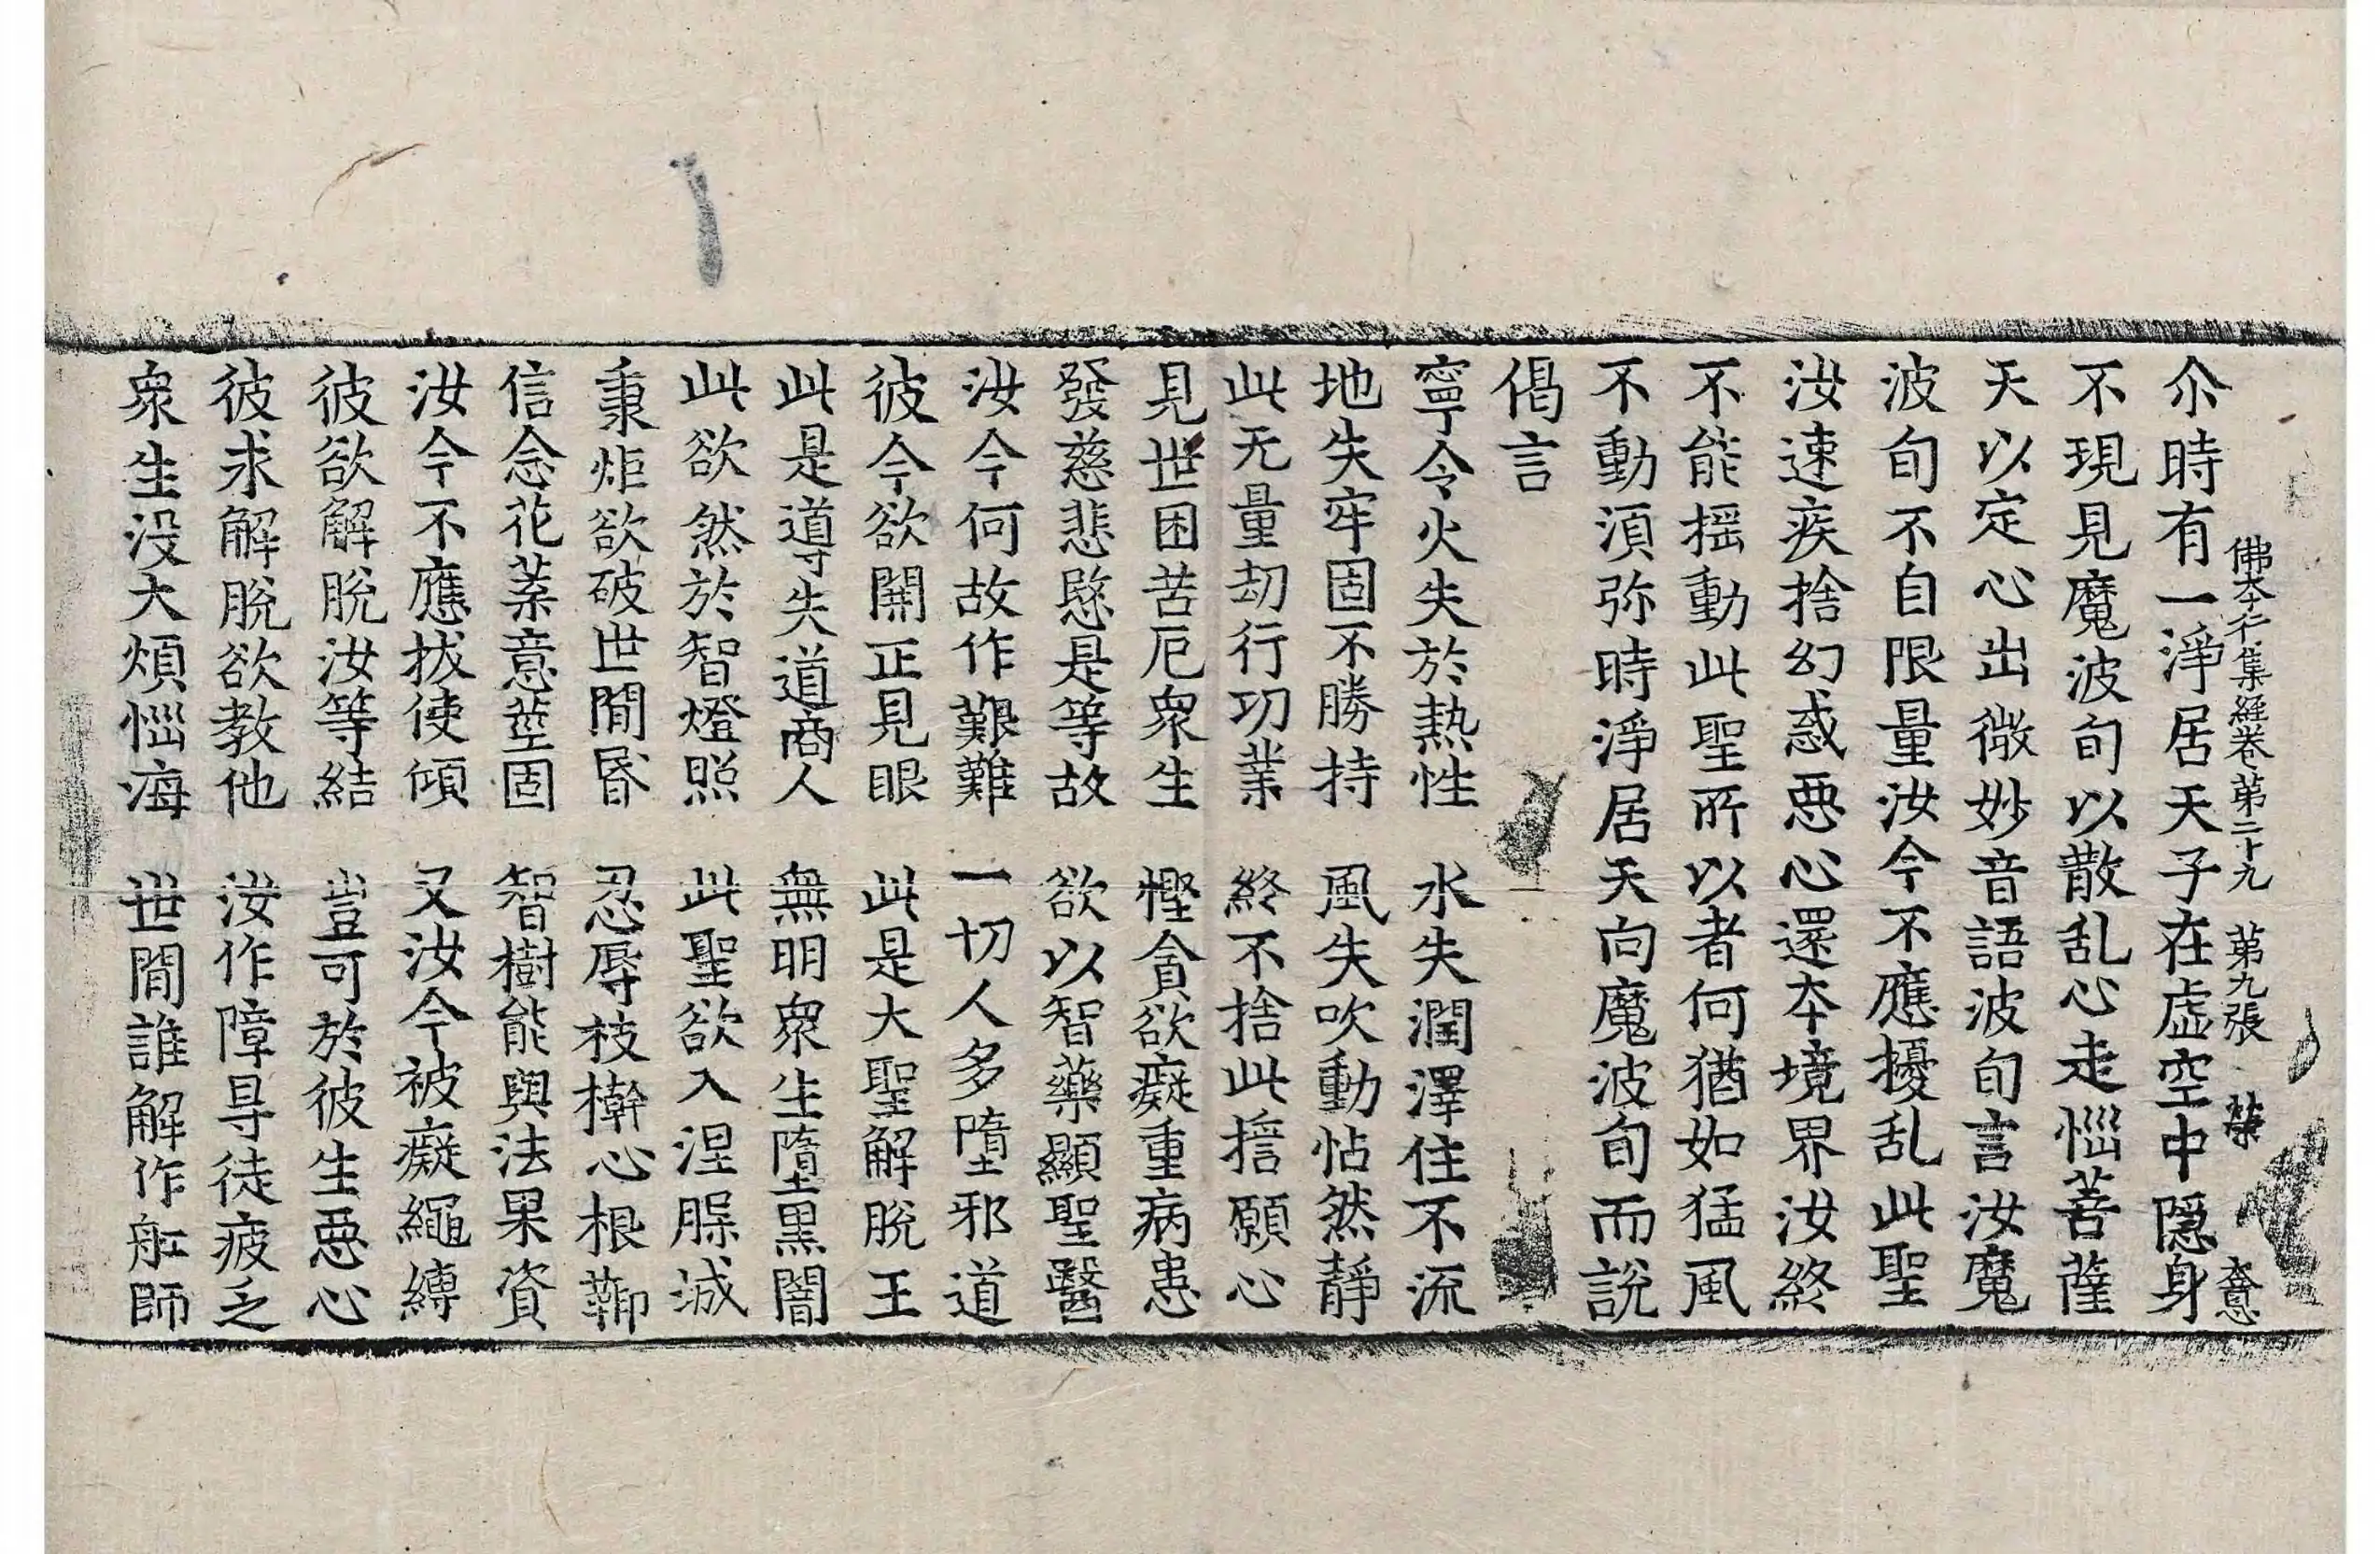 佛本行集經卷第二十九 第九張
尒時有一淨居天子在虛空中隱身
不現見魔波旬以散乱心走惱菩薩
天以定心出微妙音語波旬言汝魔
波旬不自限量汝今不應擾乱此聖
汝速疾捨幻惑恶心還本境界汝終
不能揺動此聖所以者何猶如猛風
不動湏弥時淨居天向魔波旬而說
偈言
寧令火失於熱性 水失潤澤住不流
地失牢固不勝持 風失吹動怗然靜
此无量劫行功業 終不捨此擔願心
見世困苦厄衆生 慳貪欲癡重病患
發慈悲愍是等故 欲以智藥顯聖醫
汝今何故作艱難 一切人多墮邪道
彼今欲開正見眼 此是大聖解脫王
此是導失道商人 無明衆生墮黒闇
此欲然於智燈照 此聖欲入涅槃滅
秉炬欲破世間昏 忍辱枝擀心根
信念花葉意莖固 智樹能與法果資
汝今不應拔使傾 又汝今被癡繩縛
彼欲解脫汝等結 豈可於彼生恶心
彼求解脫欲教他 汝作障㝵徒疲乏
衆生没大煩惱海 世間誰解作舩師